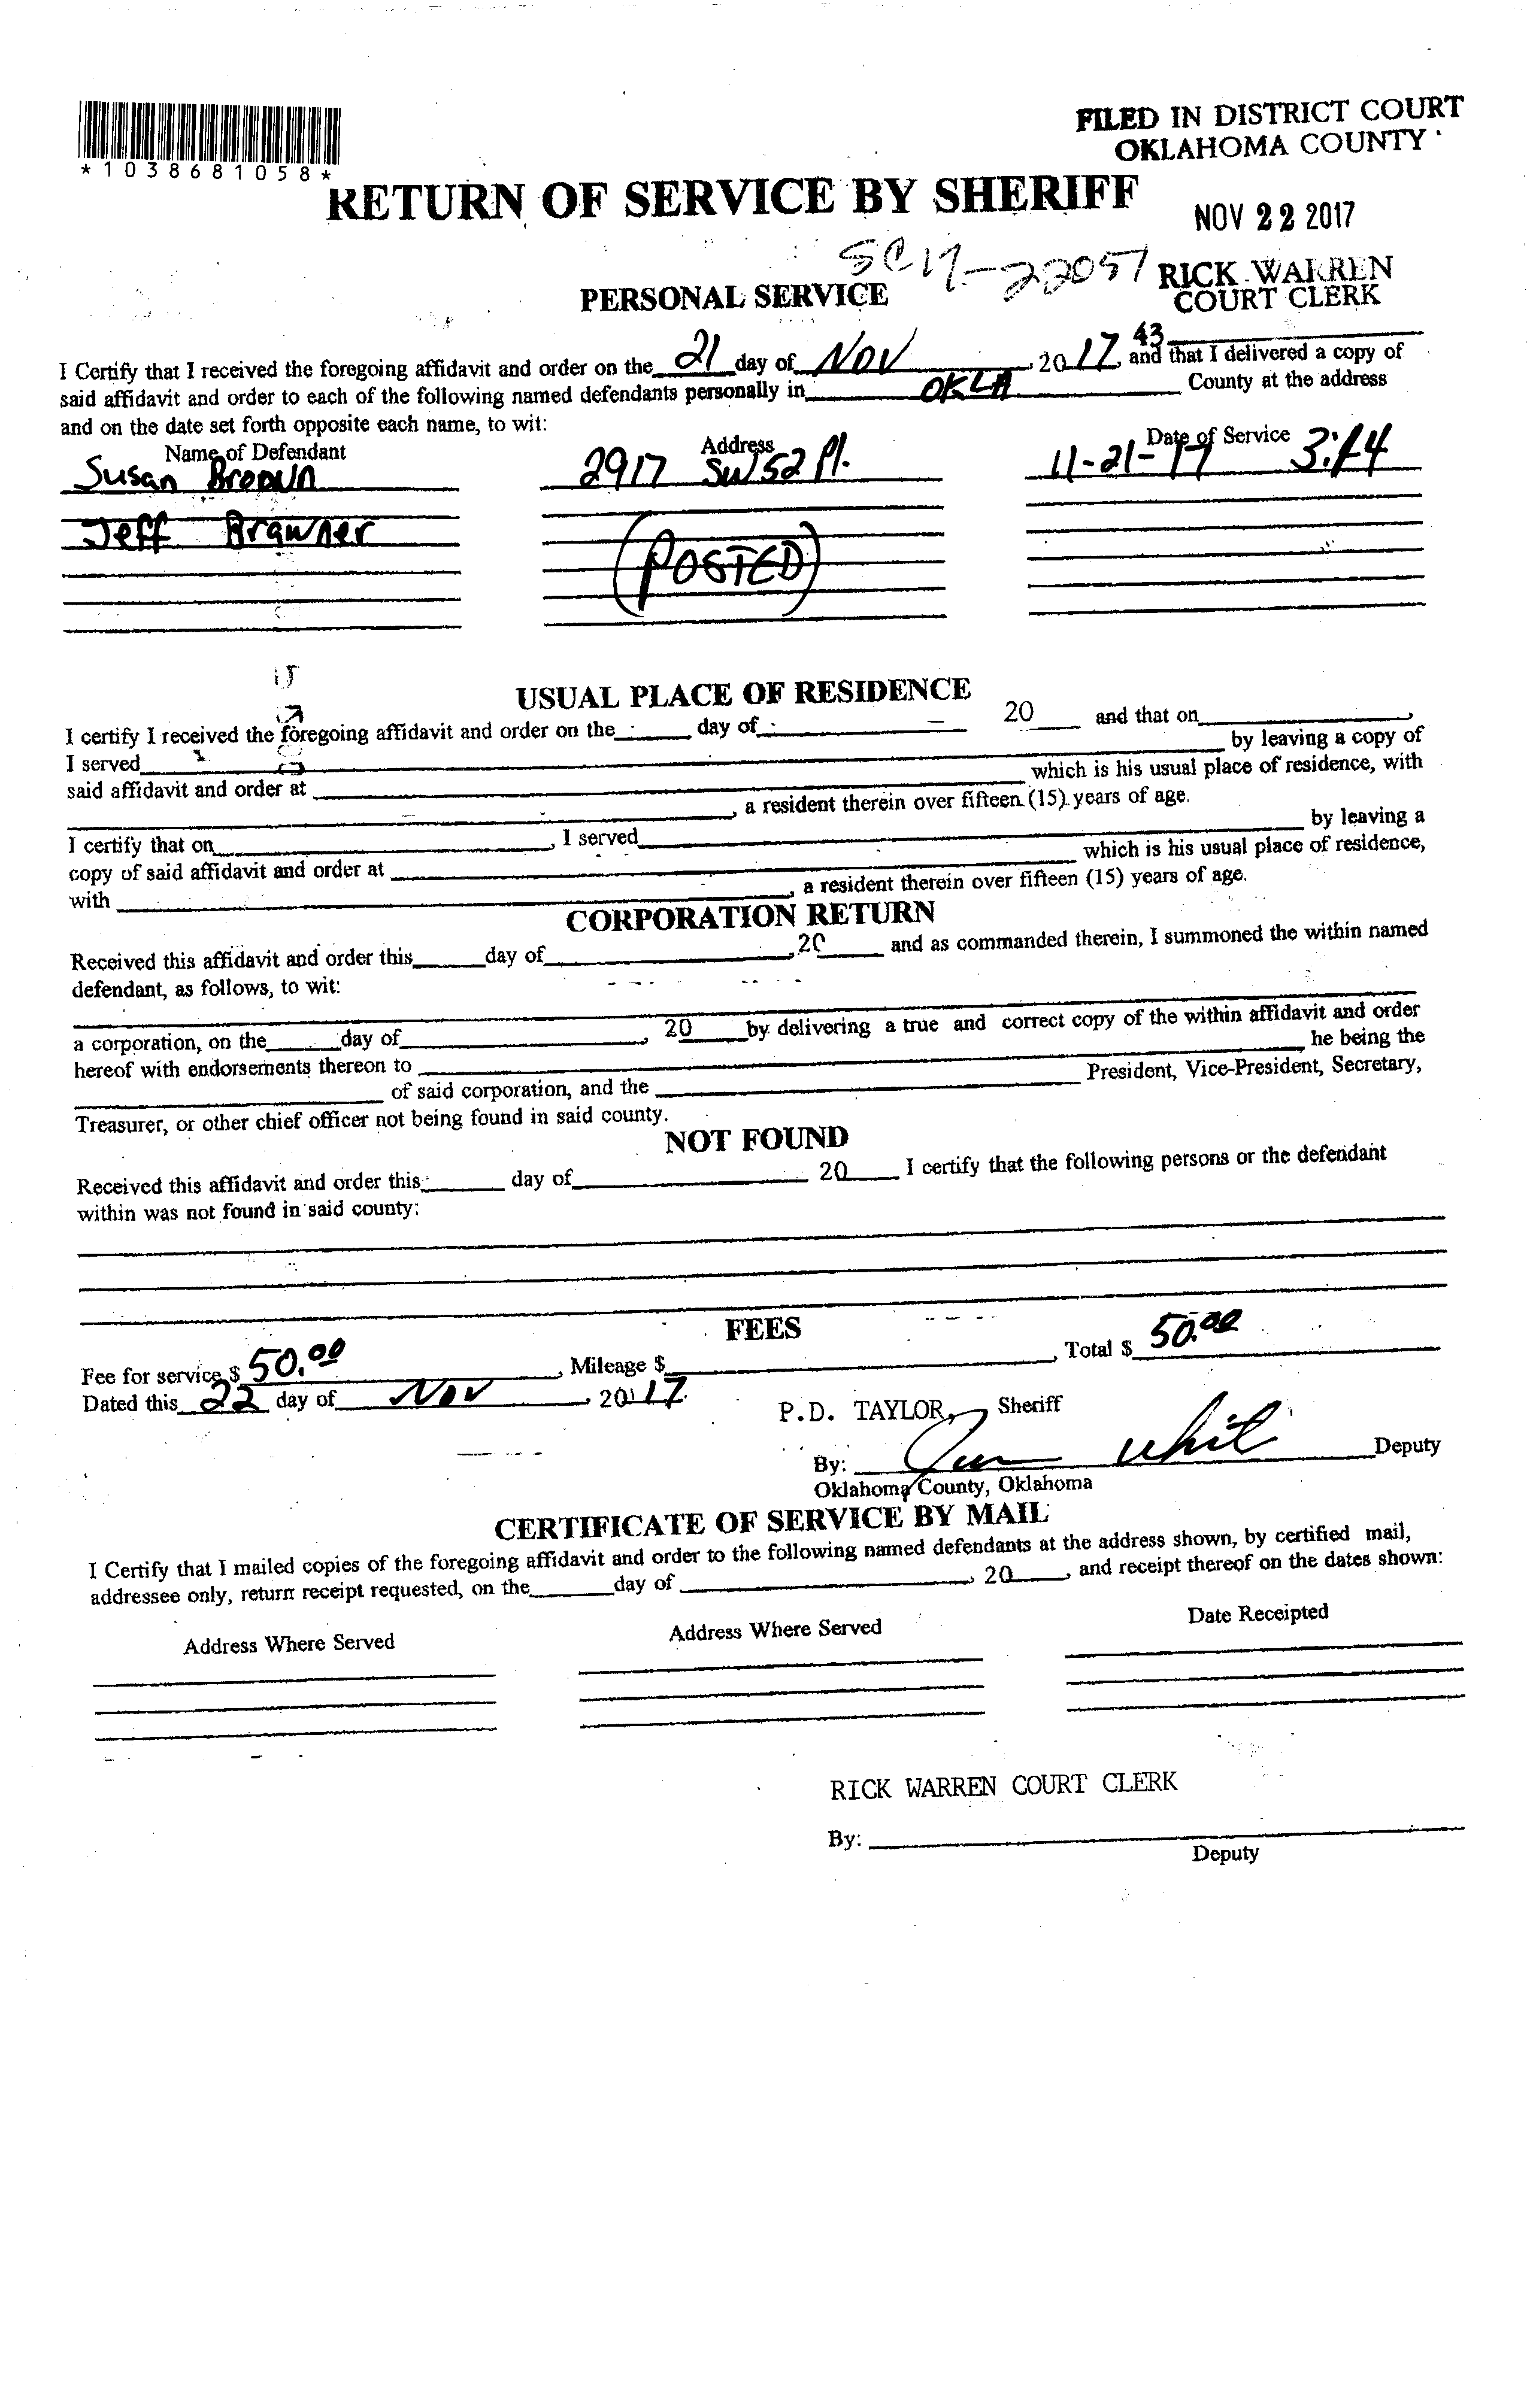 FILED IN DISTRICT COURT
OKLAHOMA COUNTY
*1038681058*
RETURN OF SERVICE BY SHERIFF
NOV 22 2017
SC17-22057
RICK WARREN
COURT CLERK
PERSONAL SERVICE
43
I Certify that I received the foregoing affidavit and order on the 21 day of NOV, 2017, and that I delivered a copy of
said affidavit and order to each of the following named defendants personally in OKLA County at the address
and on the date set forth opposite each name, to wit:
Name of Defendant Address Date of Service
Susan 2917 SW 52 Pl. 11-21-17 3:14
Jeff Brawner
(POSTED)
USUAL PLACE OF RESIDENCE
I certify I received the foregoing affidavit and order on the day of 20 and that on
I served by leaving a copy of
said affidavit and order at which is his usual place of residence, with
, a resident therein over fifteen (15) years of age.
I certify that on , I served by leaving a
copy of said affidavit and order at which is his usual place of residence,
with , a resident therein over fifteen (15) years of age.
CORPORATION RETURN
Received this affidavit and order this day of , 20 and as commanded therein, I summoned the within named
defendant, as follows, to wit:
a corporation, on the day of , 20 by delivering a true and correct copy of the within affidavit and order
hereof with endorsements thereon to he being the
of said corporation, and the President, Vice-President, Secretary,
Treasurer, or other chief officer not being found in said county.
NOT FOUND
Received this affidavit and order this day of 20 I certify that the following persons or the defendant
within was not found in said county:
FEES
Fee for service $ 50.00, Mileage $ , Total $ 50.00
Dated this 22 day of NOV, 2017.
P.D. TAYLOR, Sheriff
By: Deputy
Oklahoma County, Oklahoma
CERTIFICATE OF SERVICE BY MAIL
I Certify that I mailed copies of the foregoing affidavit and order to the following named defendants at the address shown, by certified mail,
addressee only, return receipt requested, on the day of , 20 , and receipt thereof on the dates shown:
Address Where Served Address Where Served Date Receipted
RICK WARREN COURT CLERK
By:
Deputy